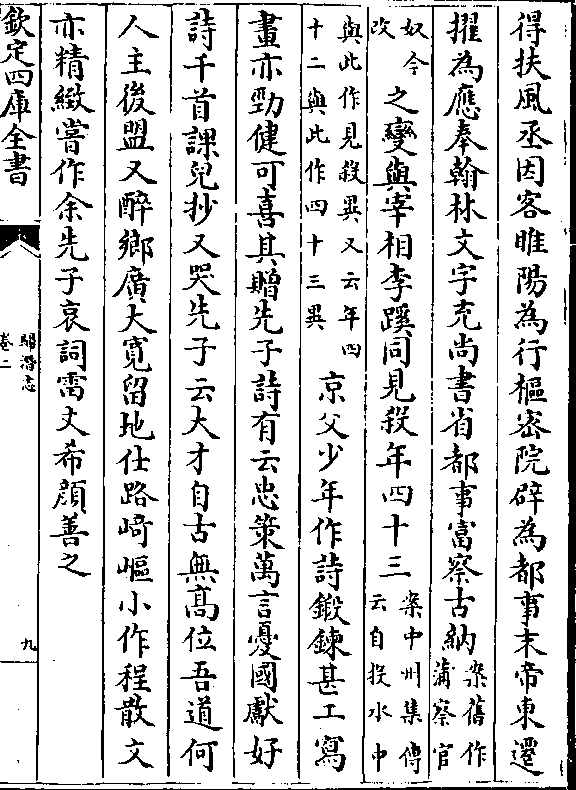 得扶風丞因客睢陽為行樞密院辟為都事末帝東遷
擢為應奉翰林文字充尚書省都事富察古納案舊作蒲察官
奴今改之變與宰相李蹊同見殺年四十三案中州集傳云自投水中
與此作見殺異又云年四十二與此作四十三異京父少年作詩鍛鍊甚工寫
畫亦勁健可喜其贈先子詩有云忠策萬言憂國獻好
詩千首課兒抄又哭先子云大才自古無髙位吾道何
人主後盟又醉鄉廣大寛留地仕路﨑嶇小作程散文
亦精緻嘗作余先子哀詞雷丈希顔善之
欽定四庫全書
歸潛志
卷二
九